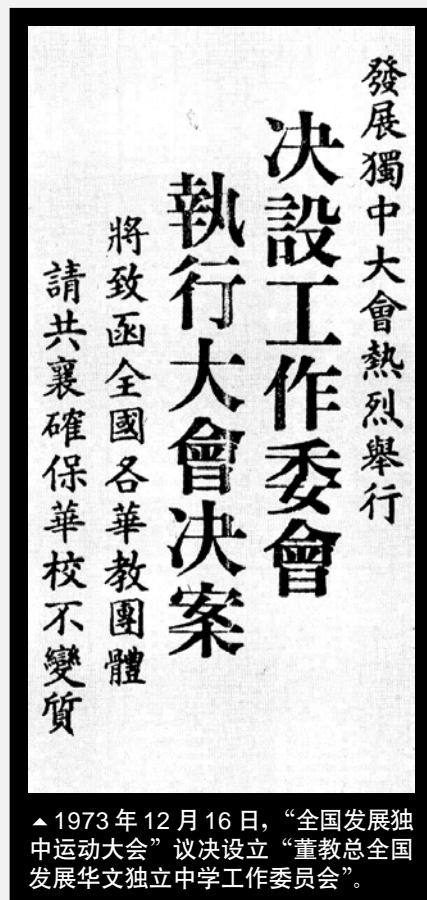 發展獨中大會熱烈舉行
决設工作委會
執行大會决案
將致函全國各華教團體
請共襄確保華校不變質
▲1973 年 12 月 16 日，“全国发展独
中运动大会”议决设立“董教总全国
发展华文独立中学工作委员会”。